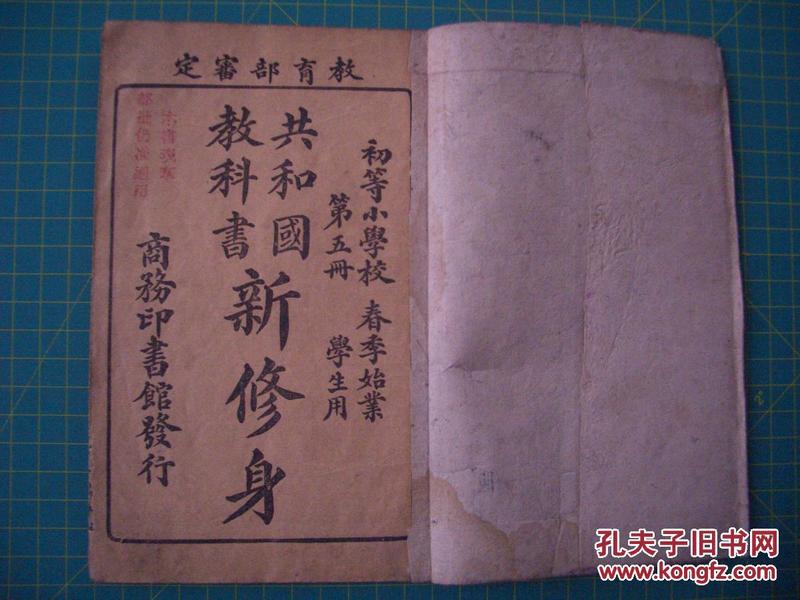 教育部審定
初等小學校 春季始業
第五冊 學生用
共和國
教科書
新修身
商務印書館發行
孔夫子旧书网
www.kongfz.com